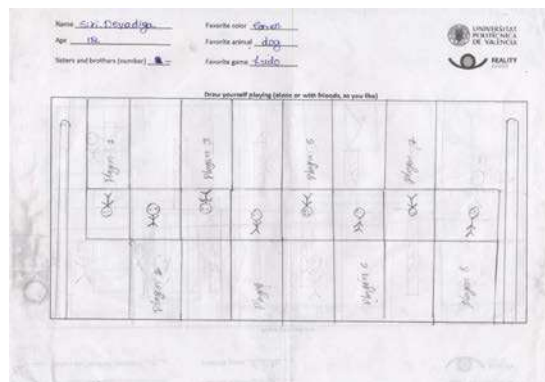 Name Siri Devadiga
Age 12
Sisters and brothers (number) -
Favorite color Green
Favorite animal dog
Favorite game Ludo
UNIVERSITAT
POLITÈCNICA
DE VALÈNCIA
REALITY
Draw yourself playing (alone or with friends, as you like)
Player 1
Player 3
Player 5
Player 7
Player 2
Player
Player 6
Player 8